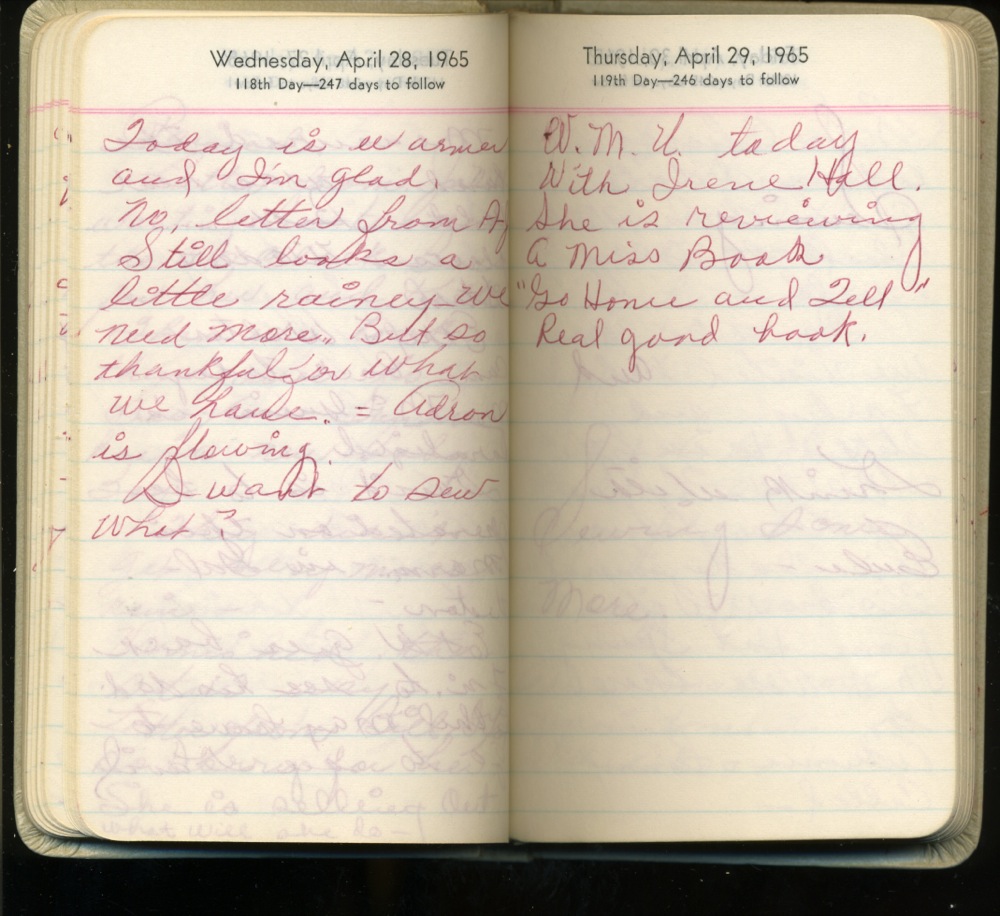 Wednesday, April 28, 1965
118th Day—247 days to follow
Today is warmer
and I'm glad.
No, letter from A
Still looks a
little rainey - We
need more. But so
thankful for What
we have. = Adron
is plowing.
I want to sew
What?
Thursday, April 29, 1965
119th Day—246 days to follow
W. M. U. today
With Irene Hall.
She is reviewing
a Miss Book
"Go Home and Tell"
Real good book.